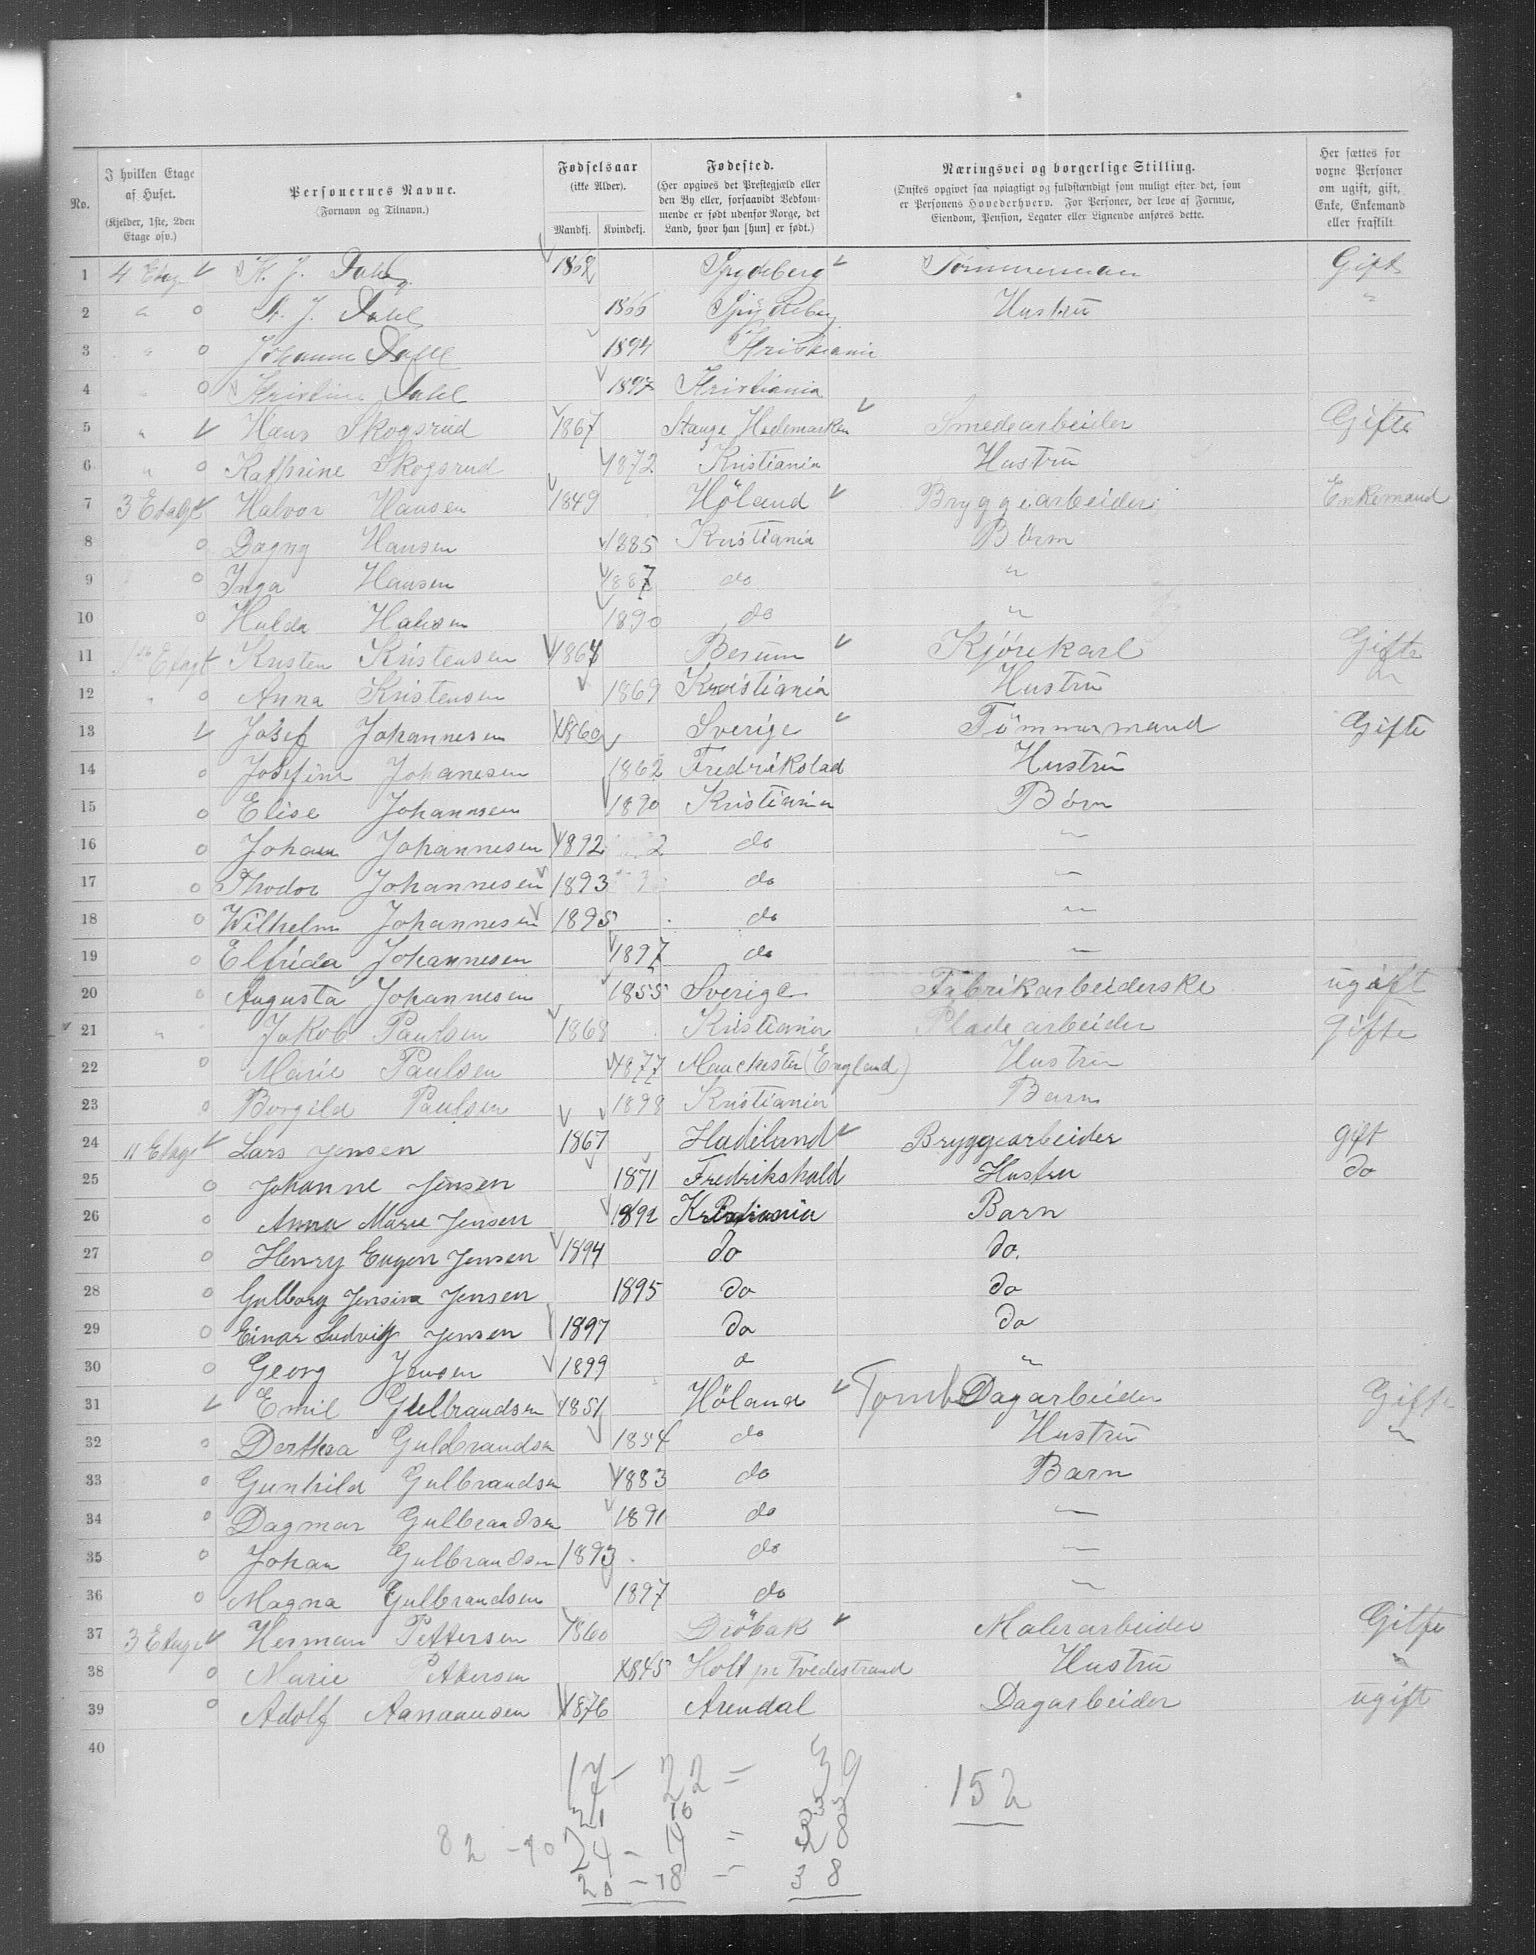 No.
I hvilken Etage af Huset. (Kjelder, 1ste, 2den Etage osv.)
Personernes Navne. (Fornavn og Tilnavn.)
Fødselsaar (ikke Alder). Mandkj. Kvindekj.
Fødested. (Her opgives det Prestegjæld eller den By eller, forsaavidt Vedkommende er født udenfor Norge, det Land, hvor han [hun] er født.)
Næringsvei og borgerlige Stilling. (Ønskes opgivet saa nøiagtigt og fuldstændigt som muligt efter det, som er Personens Hovederhverv. For Personer, der leve af Formue, Eiendom, Pension, Legater eller Lignende anføres dette.
Her sættes for voxne Personer om ugift, gift, Enke, Enkemand eller fraskilt.
1 4 Etage K. J. Dahl 1862 Spydeberg Tømmerman Gift
2 " o A. J. Dahl 1866 Spydeberg Hustrü "
3 " o Johanne Dahl 1894 Kristiania
4 o Kristine Dahl 1897 Kristiania
5 " Hans Skogsrud 1867 Stange Hedemarken Smedearbeider Gifte
6 " o Kathrine Skogsrud 1872 Kristiania Hustrü
7 3 Etage Halvor Hansen 1849 Høland Bryggearbeider Enkemand
8 o Dagny Hansen 1885 Kristiania Børn
9 o Inga Hansen 1887 do "
10 o Hulda Hansen 1890 do "
11 1ste Etage Kristen Kristensen 1864 Berum Kjørekarl Gifte
12 " o Anna Kristensen 1869 Kristiania Hustrü "
13 Josef Johannesen 1860 Sverige Tömmermand Gifte
14 o Josefine Johanesen 1862 Fredrikstad Hustrü
15 o Elise Johannsen 1890 Kristiania Børn
16 o Johan Johannesen 1892 do "
17 o Thodor Johannesen 1893 do "
18 o Wilhelm Johannesen 1895 do "
19 o Elfrida Johannesen 1897 do "
20 o Augusta Johannesen 1855 Sverige Fabrikarbeiderske ugift
21 " Jakob Paulsen 1868 Kristiania Pladearbeider gifte
22 o Marie Paulsen 1877 Manchester (England) Hustru
23 o Borgild Paulsen 1898 Kristiania Barn
24 11 Etage Lars Jensen 1867 Hadeland Bryggearbeider gift
25 o Johanne Jensen 1871 Fredrikshald Hustru do
26 o Anna Marie Jensen 1892 Kristiania Barn
27 o Henry Eugen Jensen 1894 do do.
28 o Gulborg Jensina Jensen 1895 do do
29 o Einar Ludvig Jensen 1897 do do
30 o Georg Jensen 1899 o "
31 Emil Gulbrandsen 1851 Høland Tomb Dagarbeider Gifte
32 o Dorthea Guldbrandsen 1854 do Hustrü "
33 o Gunhild Gulbrandsen 1883 do Barn
34 o Dagmar Gulbrandsen 1891 do "
35 o Johan Gulbrandsen 1893 do "
36 o Magna Gulbrandsen 1897 do "
37 3 Etage Herman Pettersen 1860 Dröbak Malerarbeider Gifte
38 o Marie Pettersen 1845 Holt pr Tvedestrand Hustrü "
39 o Adolf Aanaansen 1876 Arendal Dagarbeider ugift
40
17 - 22 = 39
152
21 16
82 - 70 24 - = 38
20 - 18 = 38